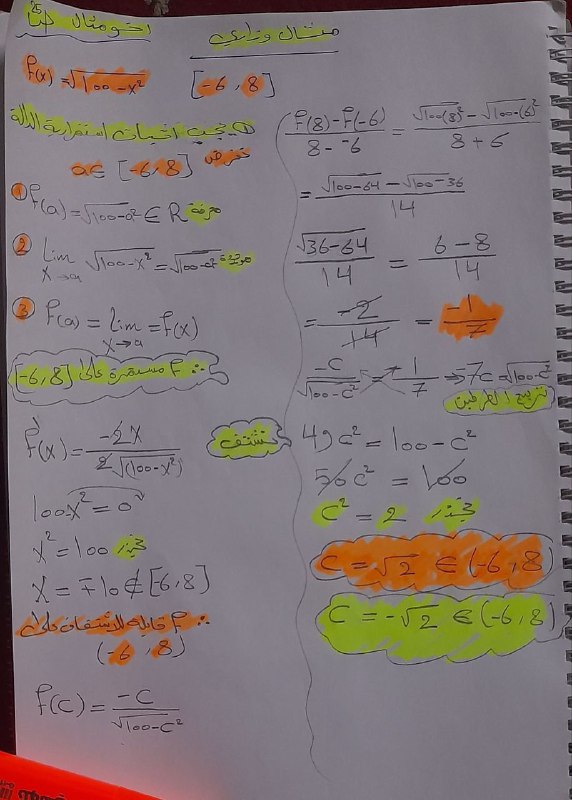 مثال وزاري
f(x) = √100-x² [-6, 8]
نفرض
a∈ [-6,8]
① f(a) = √100-a² ∈ R معرفة
② lim x→a √100-x² = √100-a²
③ f(a) = lim x→a = f(x)
∴ f مستمرة على [-6,8]
f(x) = -2x / 2√(100-x²) نشتق
100-x² = 0
x² = 100 نجذر
x = ∓10 ∉ [-6,8]
∴ f قابلة للاشتقاق على
(-6, 8)
f(c) = -c / √100-c²
f(8) - f(-6) / 8--6 = √100-(8)² - √100-(6)² / 8+6
= √100-64 - √100-36 / 14
√36-64 / 14 = 6-8 / 14
= -2 / 14 = -1 / 7
-c / √100-c² = -1 / 7 ⇒ -7c = √100-c²
تربيع الطرفين
49c² = 100-c²
50c² = 100
c² = 2 نجذر
c = √2 ∈ (-6, 8)
c = -√2 ∈ (-6, 8)